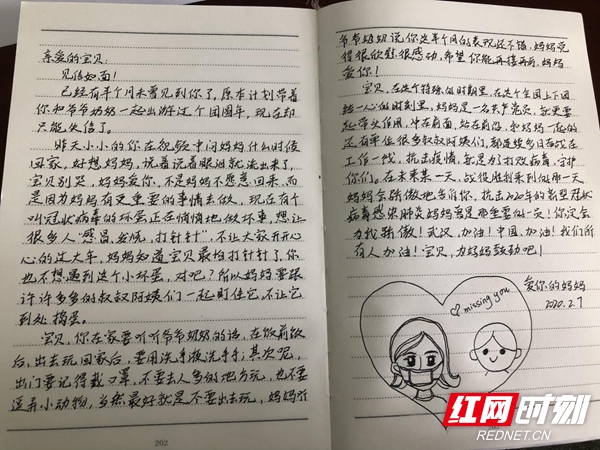 亲爱的宝贝:
见信如面!
已经有半个月未曾见到你了,原本计划带着
你和爷爷奶奶一起出游过个团圆年,现在却
只能失信了。
昨天小小的你在视频中问妈妈什么时候
回家,好想妈妈,说着说着眼泪就流出来了,
宝贝别哭,妈妈爱你,不是妈妈不愿意回来,而
是因为妈妈有更重要的事情去做,现在有个
叫冠状病毒的坏蛋正在悄悄地做坏事,想让
很多人“感冒、发烧、打针针”,不让大家开开心
心的过大年,妈妈知道宝贝最怕打针针了,你
也不想遇到这个小坏蛋,对吧?所以妈妈要跟
许许多多的叔叔阿姨们一起盯住它,不让它
到处捣蛋。
宝贝,你在家要听爷爷奶奶的话,在饭前饭
后,出去玩回家后,要用洗手液洗手手;其次呢,
出门要记得戴口罩,不要去人多的地方玩,也不要
逗弄小动物,当然最好就是不要出去玩,妈妈听
202
爷爷奶奶说你这半个月的表现还不错,妈妈觉
得很欣慰很感动,希望你能再接再厉,妈妈
爱你!
宝贝,在这个特殊的时期里,在这个全国上下团
结一心的时刻里,妈妈是一名共产党员,就更要
起带头作用,冲在前面,站在前沿,和妈妈一起的
还有单位很多叔叔阿姨们,都是夜以继日奋战在
工作一线,抗击疫情,就是为了打败病毒,守护
你们。在未来某一天,战役胜利来到的那一天,
妈妈会骄傲地告诉你,抗击2020年的新型冠状
病毒感染肺炎妈妈
为我骄傲!武汉,加油!中国,加油!我们所
有人加油!宝贝,为妈妈鼓劲吧!
爱你的妈妈
2020.2.7
missing you
红网时刻
REDNET.CN